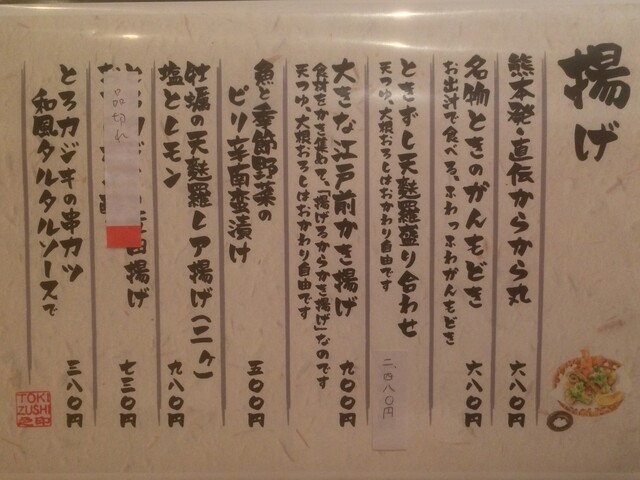 揚げ
熊本発・直伝からから丸
六八〇円
名物ときのがんもどき
お出汁で食べる。ふわっふわがんもどき
六八〇円
ときずし天麩羅盛り合わせ
天つゆ、大根おろしはおかわり自由です
二、四八〇円
大きな江戸前かき揚げ
食材をかき集めて、「揚げるからかき揚げ」なのです
天つゆ、大根おろしはおかわり自由です
九〇〇円
魚と季節野菜の
ピリ辛南蛮漬け
五〇〇円
牡蠣の天麩羅レア揚げ(二ヶ)
塩とレモン
九八〇円
品切れ
揚げ
七三〇円
とろカジキの串カツ
和風タルタルソースで
三八〇円
TOKI
ZUSHI